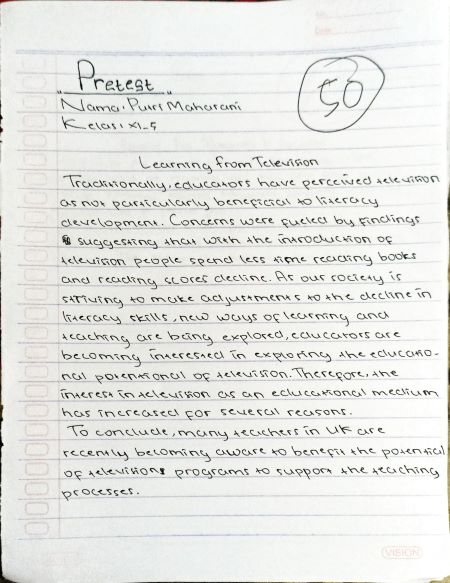 " Pretest "
50
Nama : Putri Maharani
Kelas : XI_5
Learning from Television
Traditionally, educators have perceived television
as not particularly beneficial to literacy
development. Concerns were fueled by findings
suggesting that with the introduction of
television people spend less time reading books
and reading scores decline. As our society is
striving to make adjustments to the decline in
literacy skills, new ways of learning and
teaching are being explored, educators are
becoming interested in exploring the educatio-
nal potentional of television. Therefore, the
interest in television as an educational medium
has increased for several reasons.
To conclude, many teachers in UK are
recently becoming aware to benefit the potential
of television programs to support the teaching
processes.
VISION